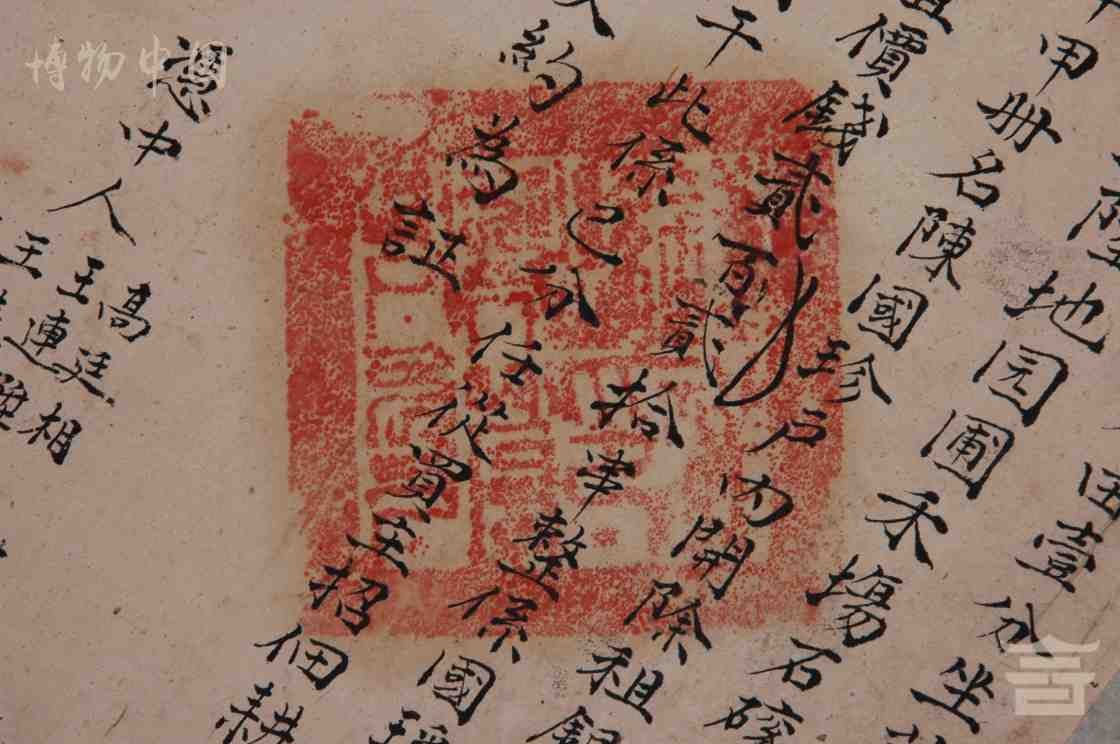 田壹分坐
地园圃禾塲石
甲册名陳國珍戶內開除租銀
價錢貳百貳拾串整係國珍
干此係己分任從買主招佃耕
約為証
憑中人
高廷相
王連
王
博物中国